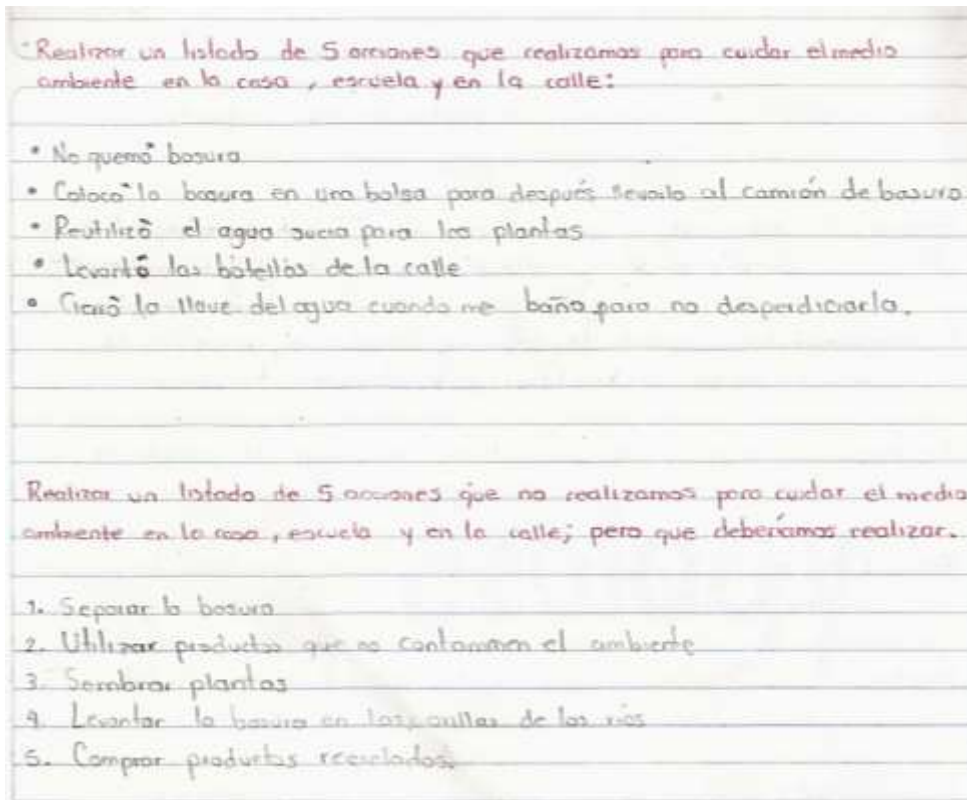 Realizar un listado de 5 acciones que realizamos para cuidar el medio
ambiente en la casa, escuela y en la calle:
• No quemó basura
• Colocó la basura en una bolsa para después llevarlo al camión de basura
• Reutilizó el agua sucia para las plantas
• Levantó las botellas de la calle
• Cierró la llave del agua cuando me baño para no desperdiciarla.
Realizar un listado de 5 acciones que no realizamos para cuidar el medio
ambiente en la casa, escuela y en la calle; pero que deberíamos realizar.
1. Separar la basura
2. Utilizar productos que no contaminen el ambiente
3. Sembrar plantas
4. Levantar la basura en las orillas de los ríos
5. Comprar productos reciclados.